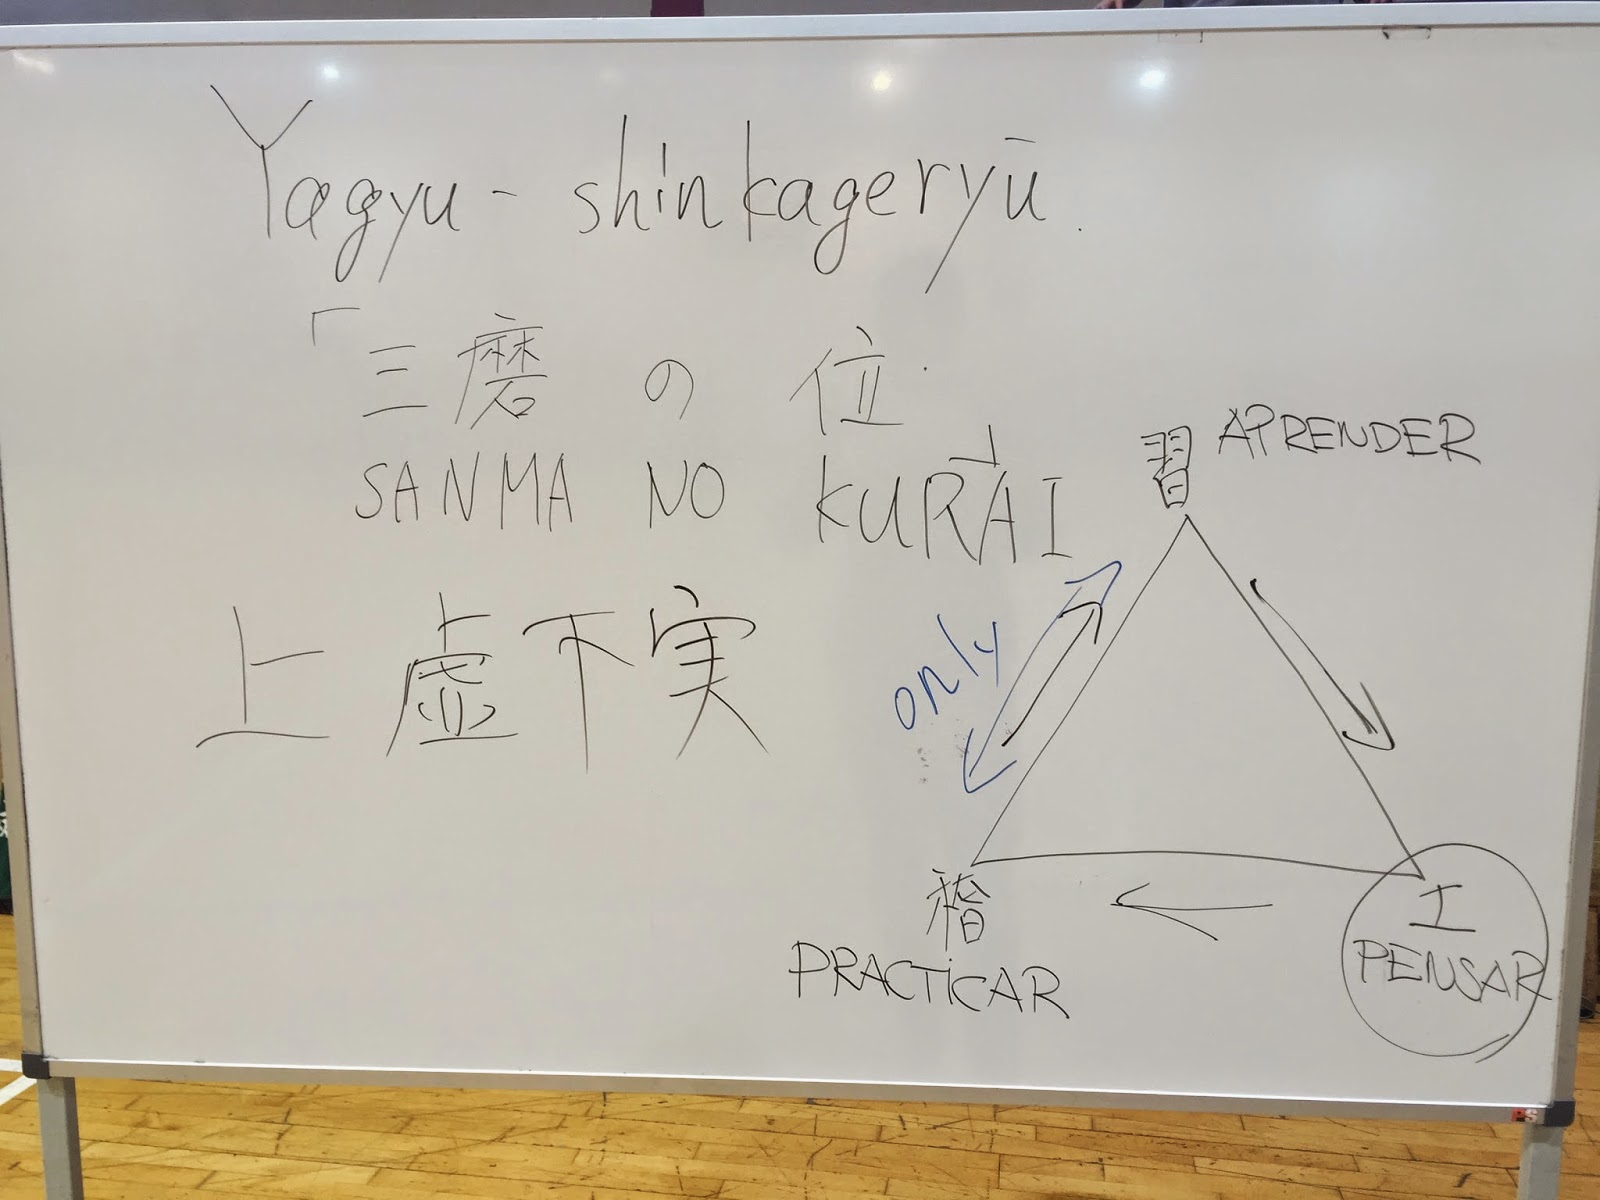 Yagyu - shinkageryū.
「三磨の位.
SANMA NO KURAI
上虚下実
習 APRENDER
only
工
PENSAR
PRACTICAR
PS